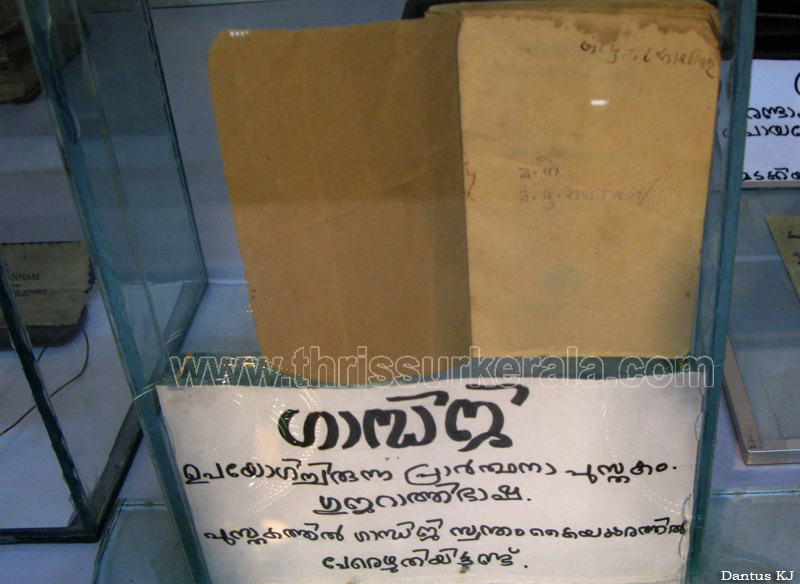 ANNAM
www.thrissurkerala.com
ഗാന്ധിജി
ഉപയോഗിച്ചിരുന്ന പ്രാർത്ഥനാ പുസ്തകം.
ഗുജറാത്തിഭാഷ.
പുസ്തകത്തിൽ ഗാന്ധിജി സ്വന്തം കൈയക്ഷരത്തിൽ
പേരെഴുതിയിട്ടുണ്ട്.
Dantus KJ